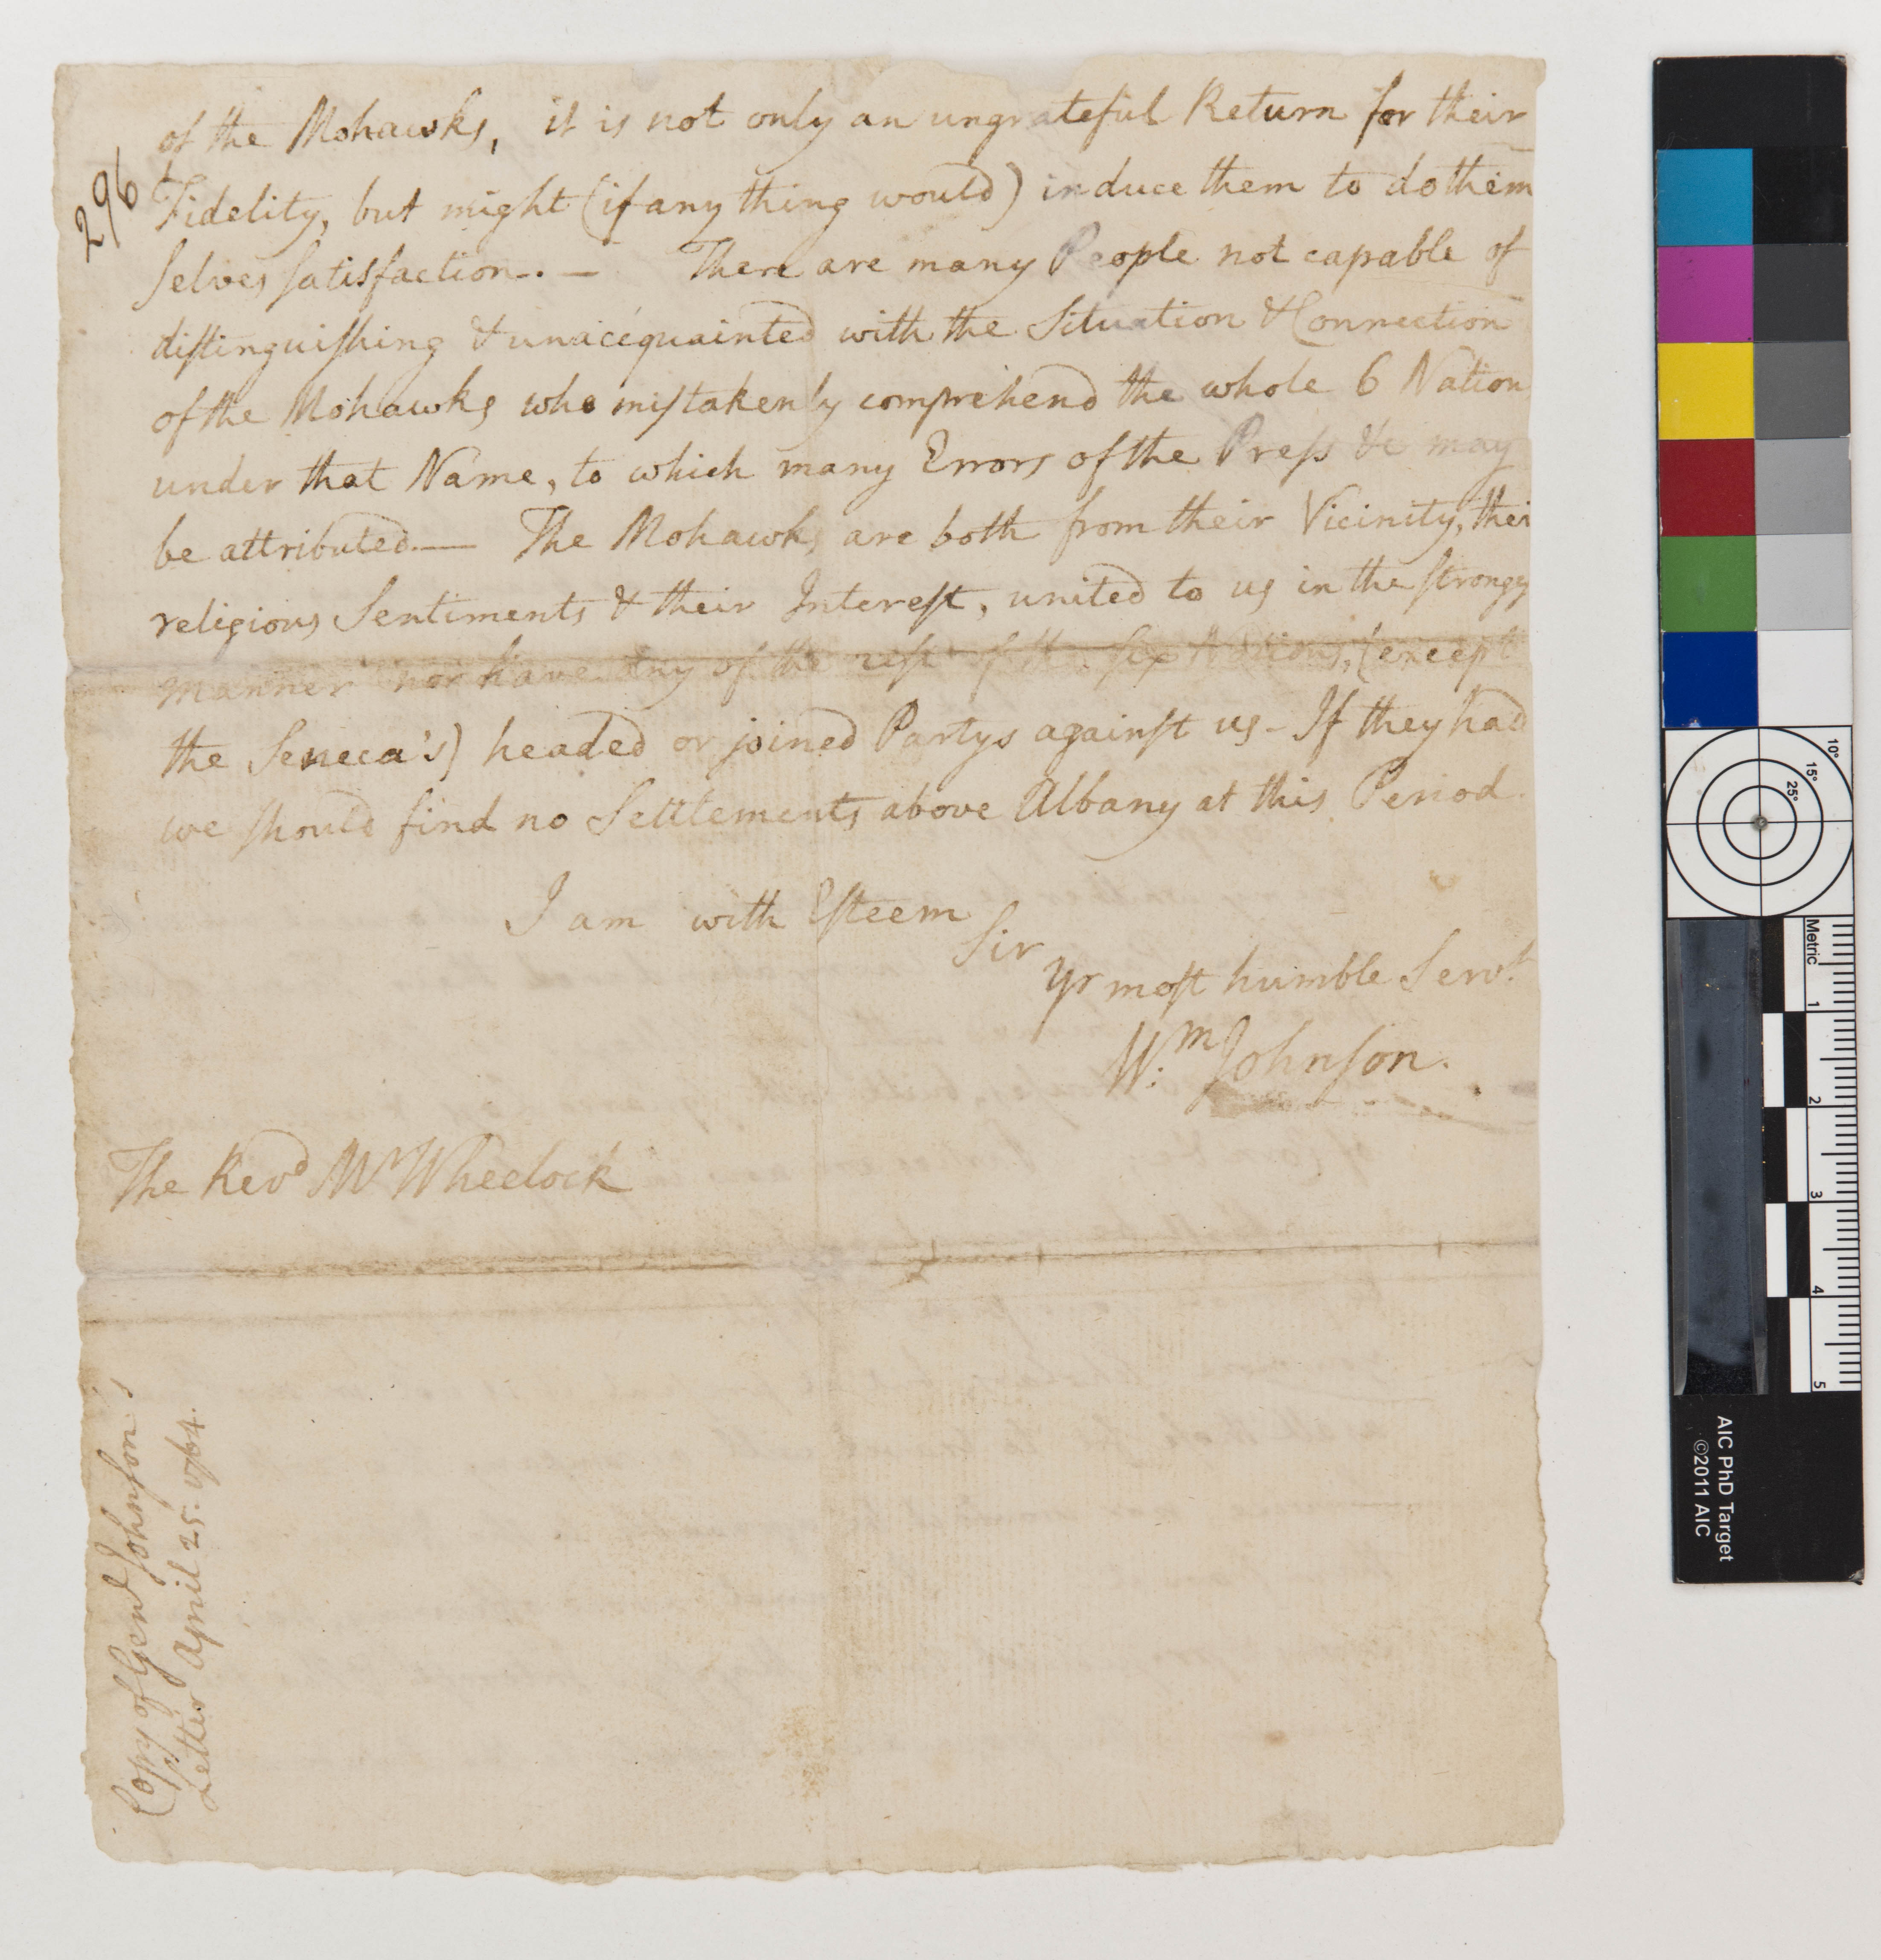 296
of the Mohawks, it is not only an ungrateful Return for their
Fidelity, but might (if any thing would) induce them to do them
selves satisfaction. — There are many People not capable of
distinguishing & unaccquainted with the Situation & Connection
of the Mohawks who mistakenly comprehend the whole 6 Nation
under that Name, to which many Errors of the Press &c may
be attributed. — The Mohawks are both from their Vicinity, thei
religious Sentiments & their Interest, united to us in the
manner nor have any of the rest of the six Nations, (except
the Seneca's) headed or joined Partys against us - If they had
we should find no Settlements above Albany at this Period.
I am with Esteem
Sir
yr most humble Servt
Wm: Johnson.
The Revd Mr Wheelock
Copy of Genl Johnson's
Letter April 25. 1764.
10°
15°
25°
Metric
1
2
3
4
5
AIC PhD Target
©2011 AIC